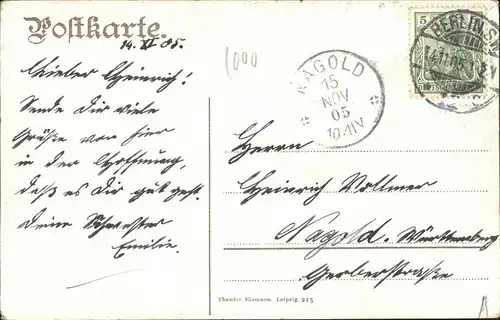 Postkarte.
14. XI 05.
Lieber Heinrich!
Sende Dir viele
Grüße von hier
in der Hoffnung,
daß es Dir gut geht.
Deine Schwester
Emilie.
1000
NAGOLD
15
NOV
05
10-11V
BERLIN S
14.11.05
5
Herrn
Heinrich Vollmer
Nagold. Württemberg
Gerberstraße
Theodor Eismann, Leipzig 215